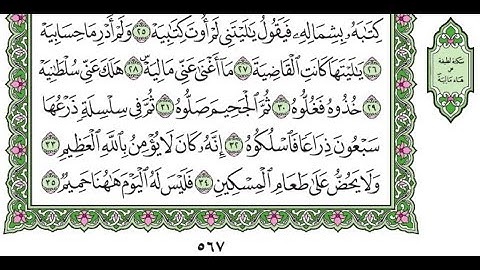 كِتَٰبَهُۥ بِشِمَالِهِۦ فَيَقُولُ يَٰلَيۡتَنِي لَمۡ أُوتَ كِتَٰبِيَهۡ ٢٥ وَلَمۡ أَدۡرِ مَا حِسَابِيَهۡ
٢٦ يَٰلَيۡتَهَا كَانَتِ ٱلۡقَاضِيَةَ ٢٧ مَآ أَغۡنَىٰ عَنِّي مَالِيَهۡۜ ٢٨ هَلَكَ عَنِّي سُلۡطَٰنِيَهۡ
٢٩ خُذُوهُ فَغُلُّوهُ ٣٠ ثُمَّ ٱلۡجَحِيمَ صَلُّوهُ ٣١ ثُمَّ فِي سِلۡسِلَةٖ ذَرۡعُهَا
سَبۡعُونَ ذِرَاعٗا فَٱسۡلُكُوهُ ٣٢ إِنَّهُۥ كَانَ لَا يُؤۡمِنُ بِٱللَّهِ ٱلۡعَظِيمِ ٣٣
وَلَا يَحُضُّ عَلَىٰ طَعَامِ ٱلۡمِسۡكِينِ ٣٤ فَلَيۡسَ لَهُ ٱلۡيَوۡمَ هَٰهُنَا حَمِيمٞ ٣٥
٥٦٧
سكتة لطيفة
على
هاء ماليه